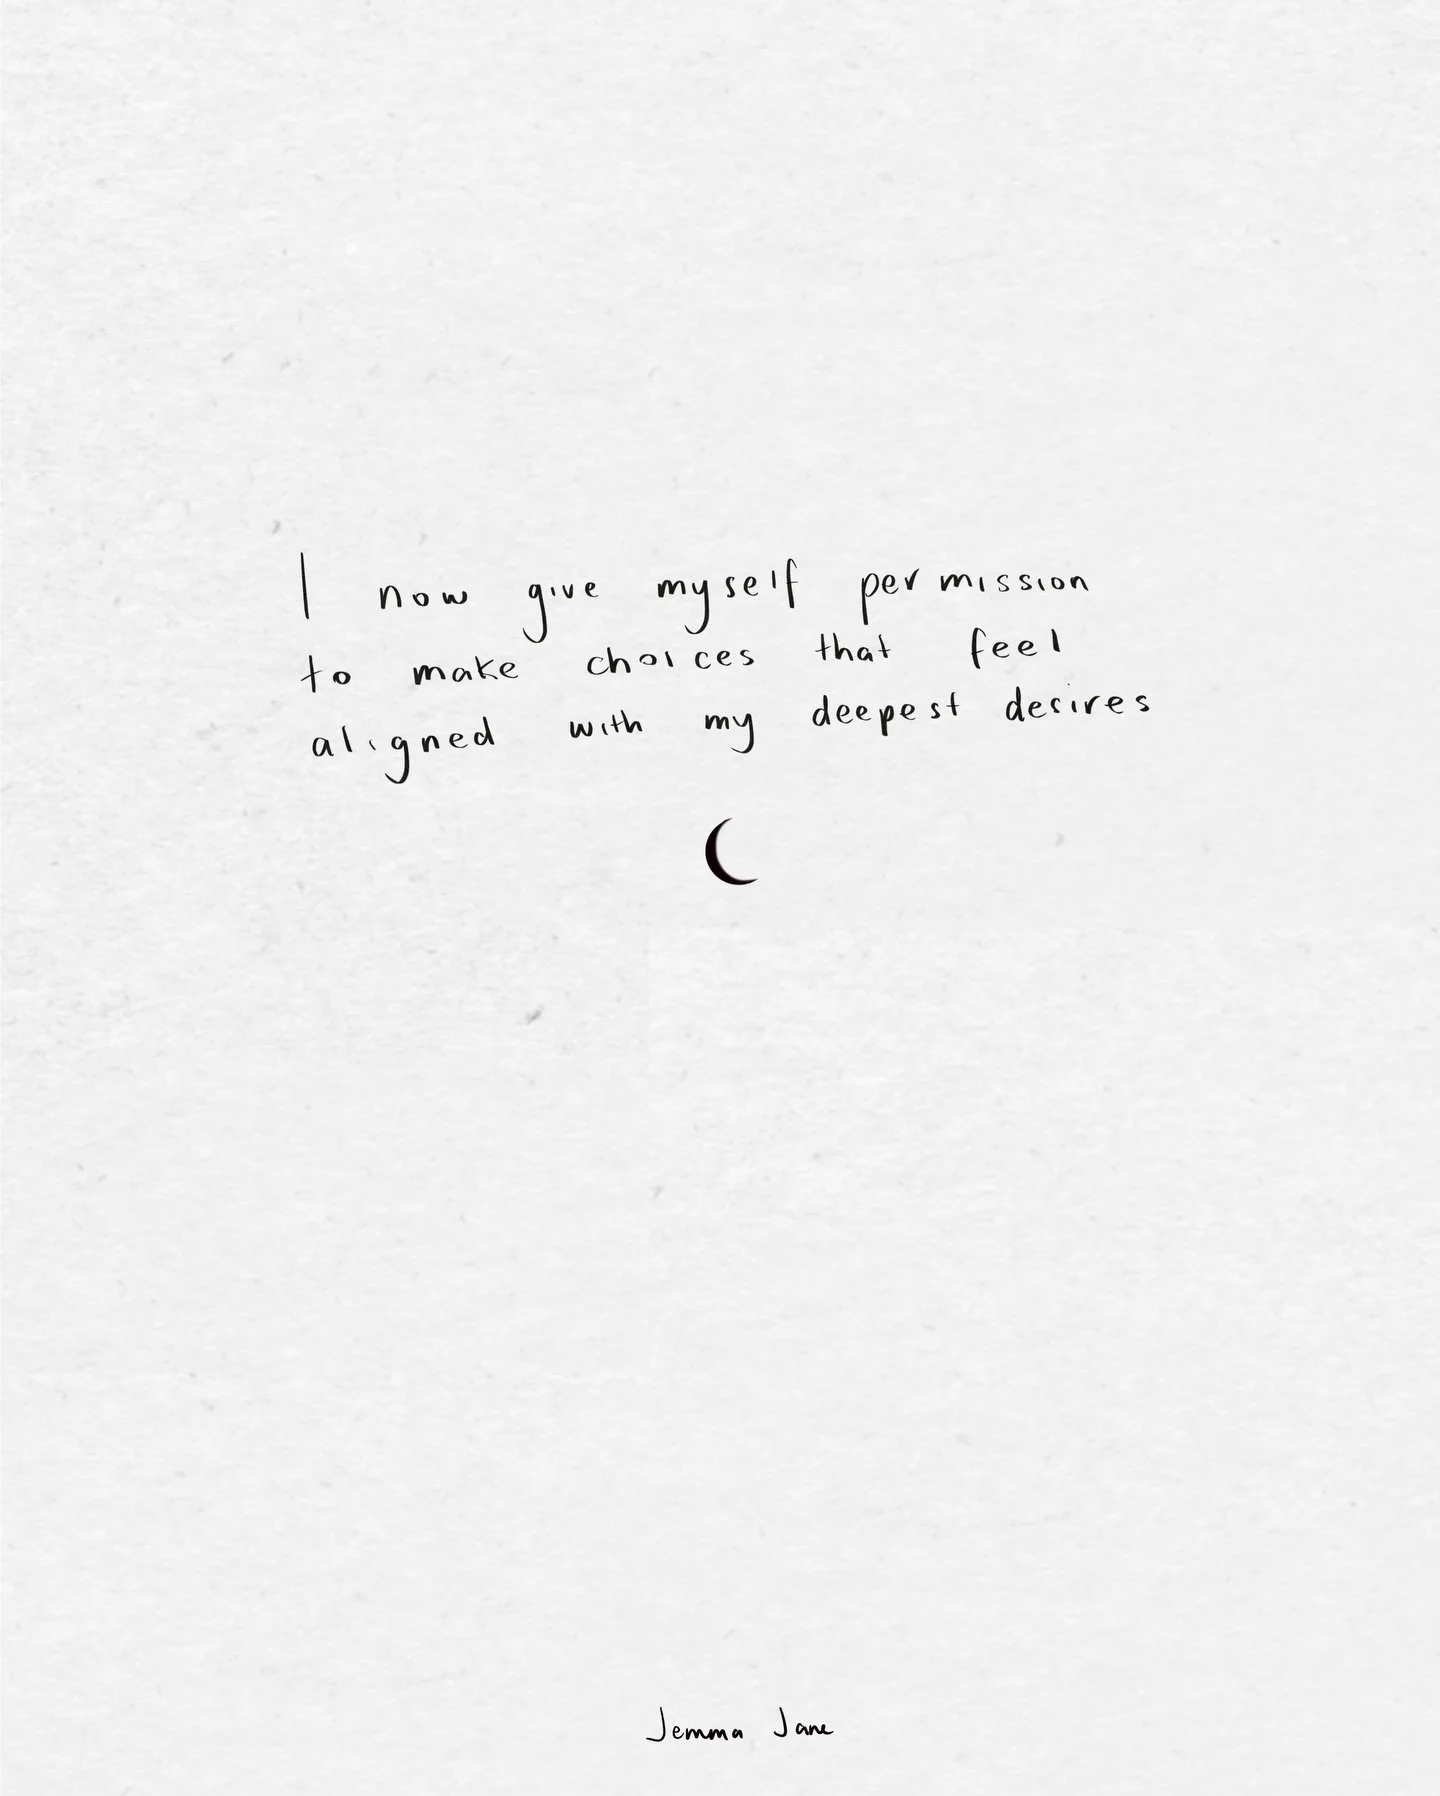 I now give myself permission
to make choices that feel
aligned with my deepest desires
Jemma Jane